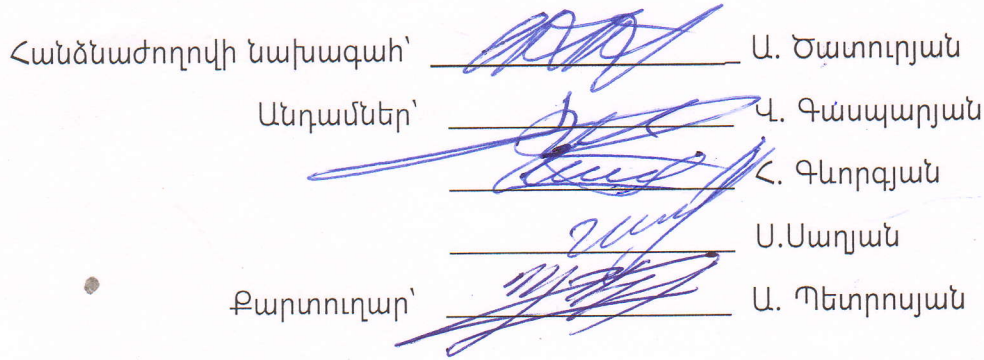 Հանձնաժողովի նախագահ՝ Ա. Ծատուրյան
Անդամներ՝ Վ. Գասպարյան
Հ. Գևորգյան
Ս.Սաղյան
Քարտուղար՝ Ա. Պետրոսյան